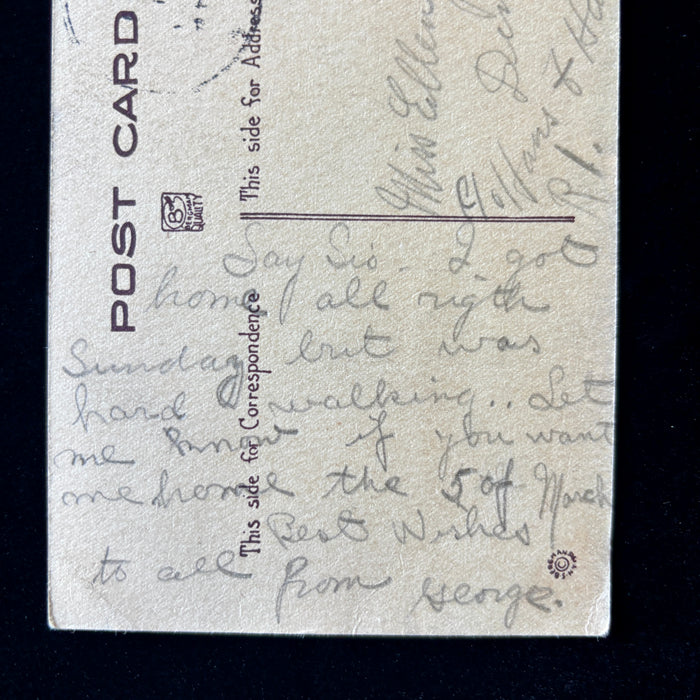 POST CARD
This side for Address
This side for Correspondence
B
BERGMAN
QUALITY
Miss Ellen
R 1.
Say Sis. I got
home all rigth
Sunday but was
hard walking.. Let
me know if you want
me home the 5 of March
Best Wishes
to all from George.
©